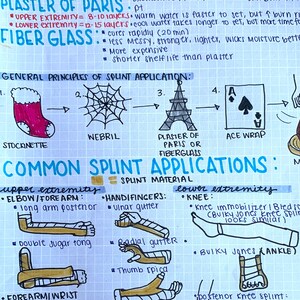 PLASTER OF PARIS:
pt
*UPPER EXTREMITY = 8-10 layers
• warm water is faster to set, but ↑ burn
*LOWER EXTREMITY =
• cool water takes longer to set, but more time
FIBER GLASS:
• cures rapidly (20 min)
• less messy, stronger, lighter, wicks moisture better
• more expensive
• shorter shelflife than plaster
GENERAL PRINCIPLES OF SPLINT APPLICATION:
1.
2.
3.
4.
A
STOCKINETTE
WEBRIL
PLASTER OF
PARIS OR
FIBERGLASS
ACE WRAP
COMMON SPLINT APPLICATIONS:
= SPLINT MATERIAL
upper extremity
lower extremity
•ELBOW/FOREARM:
•HAND/FINGERS:
•KNEE:
*long arm posterior
*ulnar gutter
*knee immobilizer/
(Bulky Jones knee splint
looks similar)
*Double sugar tong
*Radial gutter
*Bulky Jones (ANKLE)
*Thumb spica
•FOREARM/WRIST
*posterior knee splint: